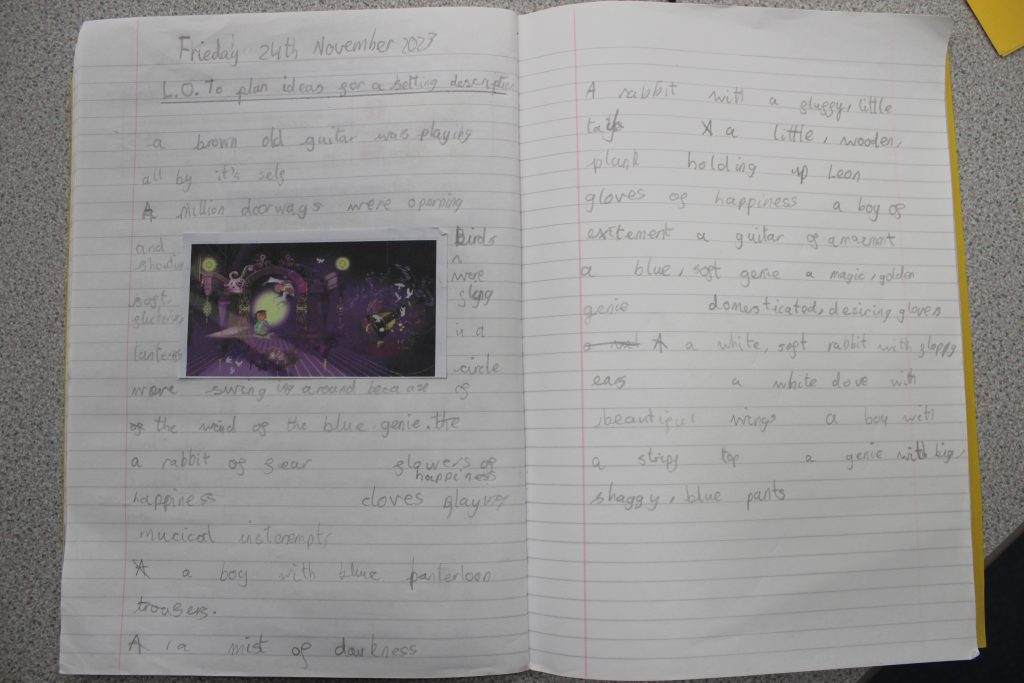 Frieday 24th November 2023
L.O. To plan ideas for a setting description
a brown old guitar was playing
all by it's self
A million doorways were oparning
and birds
shoulus were
soft, slying
gluterey, in a
lanteres circle
were swing ing around because of
of the wind of the blue genie. the
a rabbit of fear flowers of
happiness
happiness cloves playing
mucicol insterempts
A a boy with blue panterloon
trousers.
A a mist of darkness
A rabbit with a fluffy, little
tail A a little, wooden,
plank holding up Leon
gloves of happiness a boy of
exitement a guitar of amazment
a blue, soft genie a magic, golden
genie domesticatod, desiring gloves
A a white, soft rabbit with floppy
ears a white dove with
beautiful wings a boy with
a stripy top a genie with big,
shaggy, blue pants